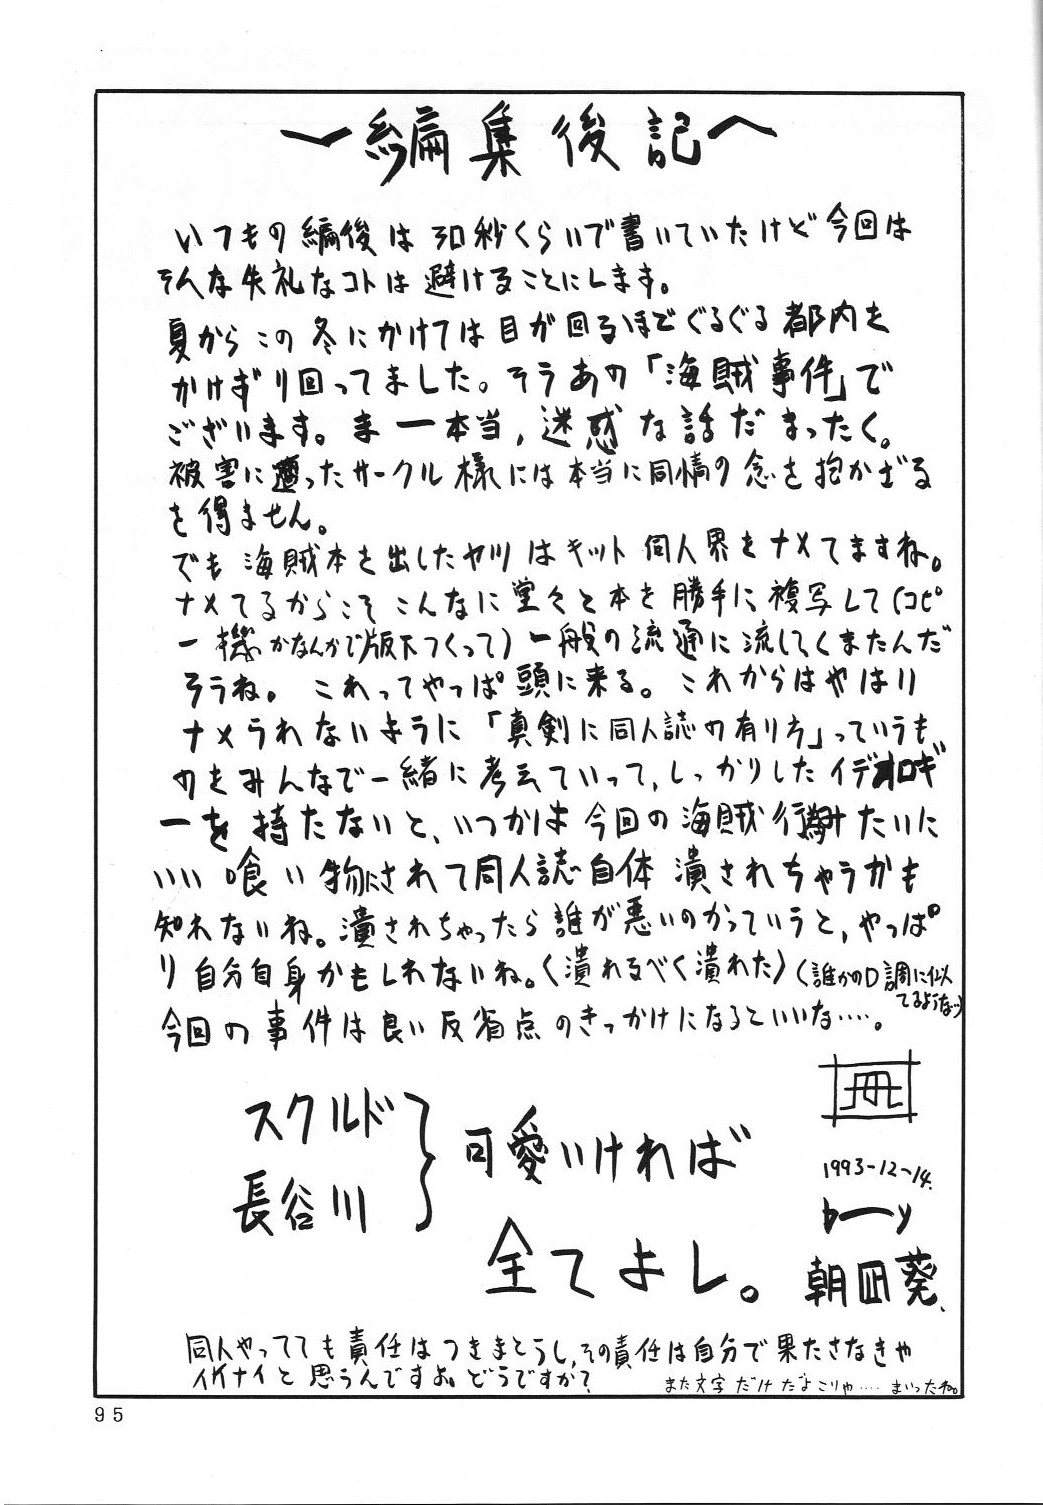 〜編集後記〜
いつもの編後は30秒くらいで書いていたけど今回は
そんな失礼なコトは避けることにします。
夏からこの冬にかけては目が回るほどぐるぐる都内を
かけずり回ってました。そうあの「海賊事件」で
ございます。まー本当,迷惑な話だまったく。
被害に遭ったサークル様には本当に同情の念を抱かざる
を得ません。
でも海賊本を出したヤツはキット同人界をナメてますね。
ナメてるからこそこんなに堂々と本を勝手に複写して(コピ
ー機かなんかで版下つくって)一般の流通に流してくまたんだ
そうね。これってやっぱ頭に来る。これからはやはり
ナメられないように「真剣に同人誌の有り方」っていうも
のをみんなで一緒に考えていって,しっかりしたイデオロギ
ーを持たないと、いつかは今回の海賊行為みたいに
いい喰い物にされて同人誌自体潰されちゃうかも
知れないね。潰されちゃったら誰が悪いのかっていうと,やっぱ
り自分自身かもしれないね。〈潰れるべく潰れた〉(誰かの口調に似
てるような…)
今回の事件は良い反省点のきっかけになるといいな‥‥。
スクルド
長谷川
可愛いければ
全てよし。
1993-12-14.
by
朝凪葵.
同人やってても責任はつきまとうし,その責任は自分で果たさなきゃ
イケナイと思うんですよ。どうですか?
また文字だけだよこりゃ‥‥まいったね。
95